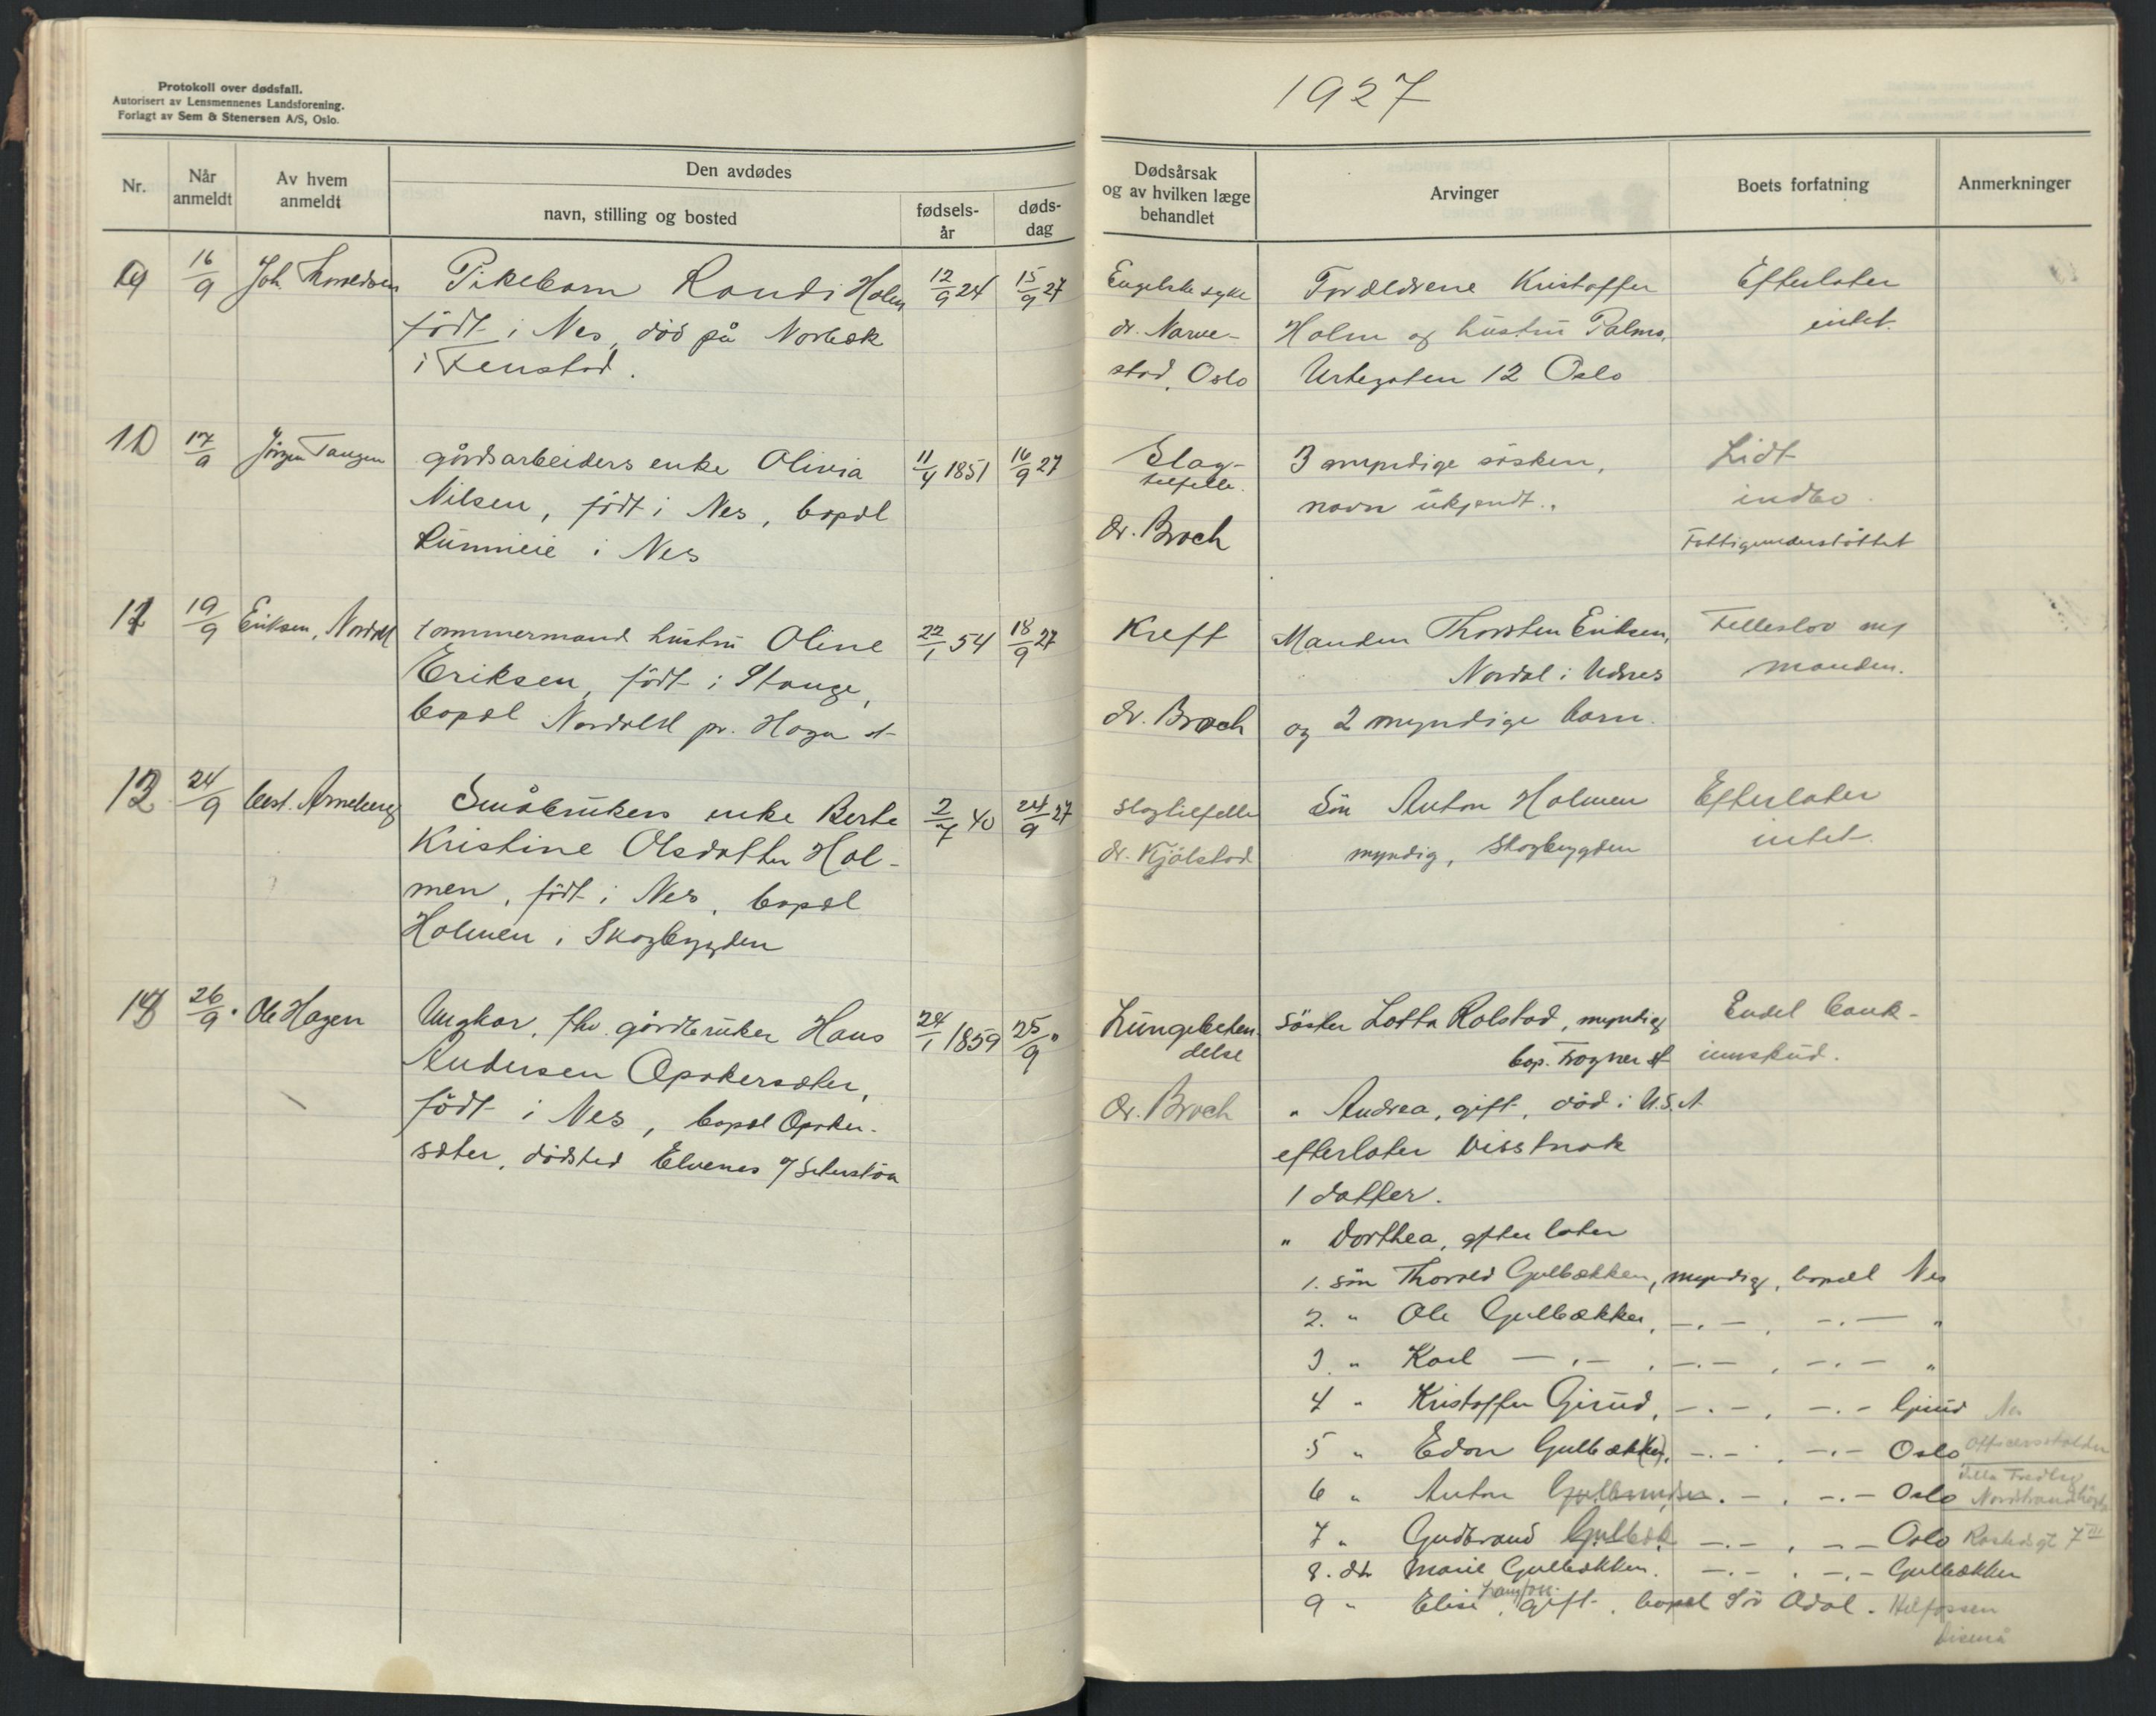 Protokoll over dødsfall.
Autorisert av Lensmennenes Landsforening.
Forlagt av Sem & Stenersen A/S, Oslo.
1927
Nr.
Når anmeldt
Av hvem anmeldt
Den avdødes
navn, stilling og bosted
fødsels-år
døds-dag
Dødsårsak og av hvilken læge behandlet
Arvinger
Boets forfatning
Anmerkninger
9 16/9 Joh. Thorvaldsen
Pikebarn Randi Holm 12/9 24 15/9 27
født i Nes, død på Norbæk
i Fenstad.
Engelske syke
dr. Narve-
stad, Oslo
Forældrene Kristoffer
Holm og hustru Palma,
Urtegaten 12 Oslo
Efterlater
intet.
10 17/9 Jørgen Tangen
gårdsarbeiders enke Olivia 11/4 1851 16/9 27
Nilsen, født i Nes, bopæl
Runnieie i Nes
Slag-
tilfelle.
dr. Broch
3 myndige søsken,
navn ukjendt.
Lidt
indbo.
Fattigunderstøttet
11 19/9 Eriksen, Nordal
tømmermand hustru Oline 22/1 54 18/9 27
Eriksen, født i Stange,
bopæl Nordal pr. Haga st
Kreft
dr. Broch
Manden Thorsten Eriksen,
Nordal i Udnes
og 2 myndige barn.
Fellesbo med
manden.
12 24/9 best. Arneberg
Småbrukers enke Berte 2/7 40 24/9 27
Kristine Olsdatter Hol-
men, født i Nes, bopæl
Holmen i Skogbygden
Slagtilfelle
dr. Kjølstad
Søn Anton Holmen
myndig, Skogbygden
Efterlater
intet.
13 26/9 Ole Hagen
Ungkar, fhv. gårdbruker Hans 24/1 1859 25/9 "
Andersen Opakersæter,
født i Nes, bopæl Opaker-
sæter, dødsted Elvenes i/ Seterstøa
Lungebeten-
delse
dr. Broch
Søster Lotta Rolstad, myndig
bop. Frogner st
" Andrea, gift, død i U.S.A
efterlater visstnok
1 datter.
" Dorthea, efterlater
1. søn Thorvald Gulbækken, myndig, bopæl Nes
2. " Ole Gulbækken, -.-, -.- "
3. " Karl -.-, -.-, -.- "
4 " Kristoffer Gjirud, -.-, -.- Gjirud Nes
5 " Edon Gulbækk(en), -.-, -.- Oslo
6 " Anton Gulbrandsen. -, -.- Oslo
7 " Gudbrand Gulbæk -.-, -.- Oslo
8. dt. Marie Gulbækken. -.-, -.- Gulbækken
9 " Elise, gift, bopæl Sør Odal.
Endel bank-
innskud.